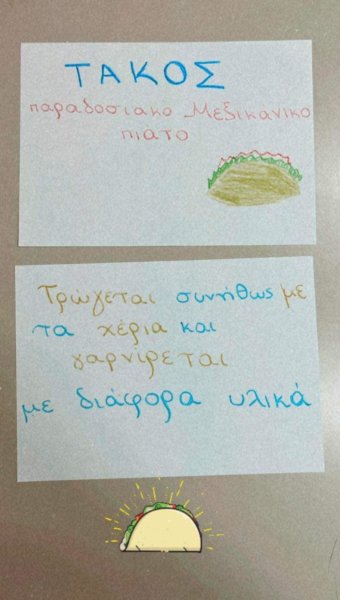 ΤΑΚΟΣ
παραδοσιακο Μεξικανικο
πιατο
Τρώγεται συνήθως με
τα χέρια και
γαρνίρεται
με διάφορα υλικά